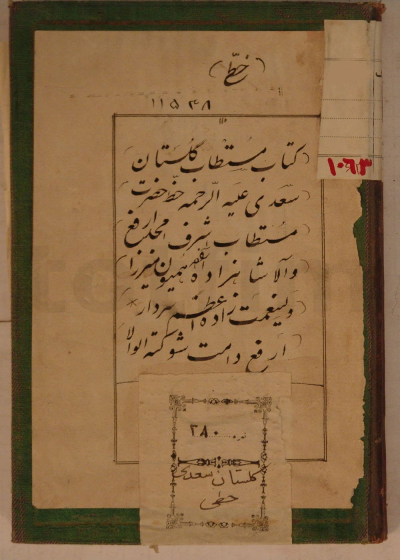 (خطّی)
۱۱۵۴۸
۱۰۶۳
کتاب مستطاب گلستان
سعدی علیه الرحمه حظ حضرت
مستطاب اشرف امجد ارفع
والا شاهزاده افخم همیون میرزا
ولینعمت زاده اعظم سردار
ارفع دامت شوکته الوالا
نمره ۲۸۰
گلستان سعدی
خطی